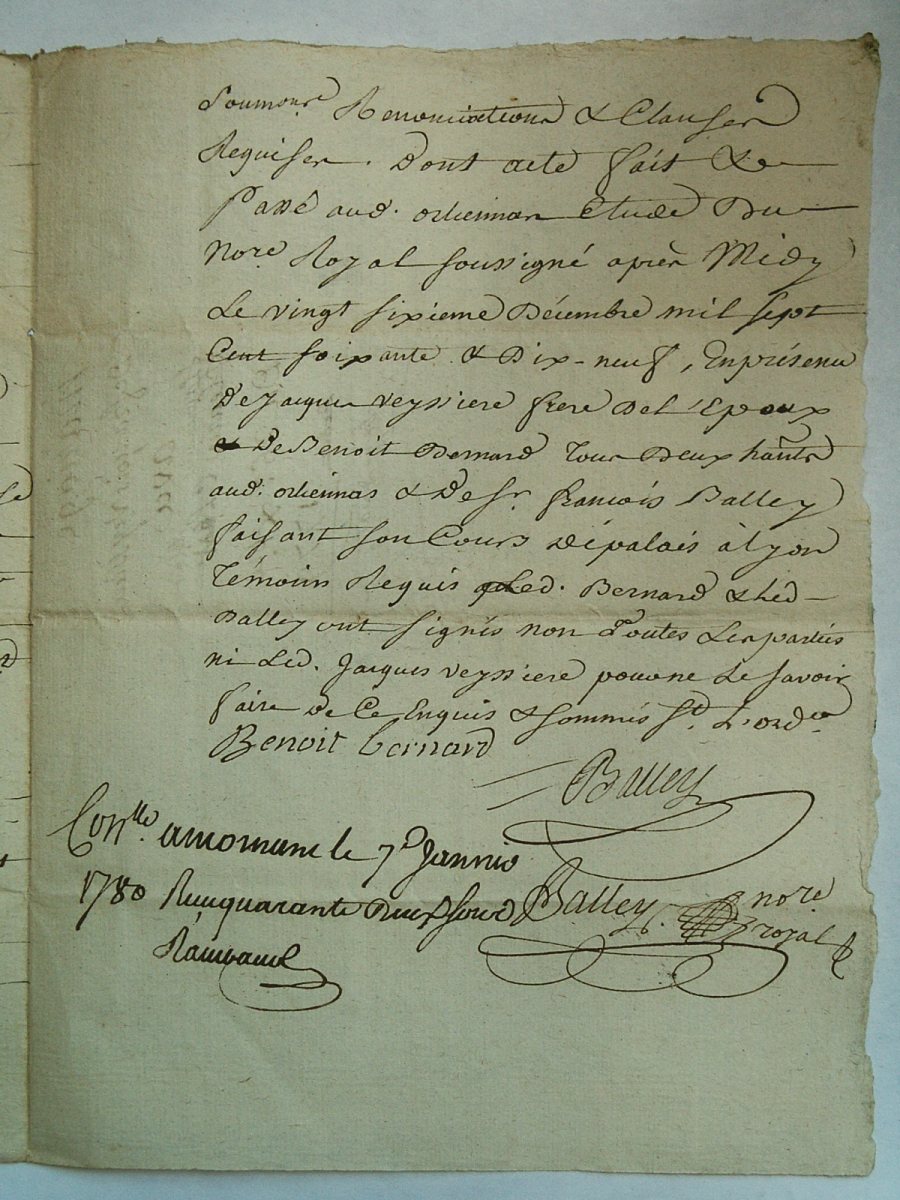 Soumons. Renonciations & Clauses
Requises. Dont acte fait &
Passé aud. orliennas Etude Du
Nore. Royal soussigné après Midy
Le vingt sixieme Décembre mil sept
Cent soixante & Dix-neuf, En présence
De Jacque veyssiere frere De l'Epoux
& De Benoit Bernard Tous Deux habts
aud. orliennas & De Sr. françois Balley
faisant son Cours dépalais à Lyon
Témoins Requis Led. Bernard & Led
Balley ont signés non Toutes Les parties
ni Led. Jacques veyssiere pour ne Le savoir
faire De Ce Enquis & sommés St. L'ordce
Benoit bernard
Balley
Conlle. a mornant le 7e Janvier
1780 Recu quarante Deux sous
Balley nore
royal
Rambaud